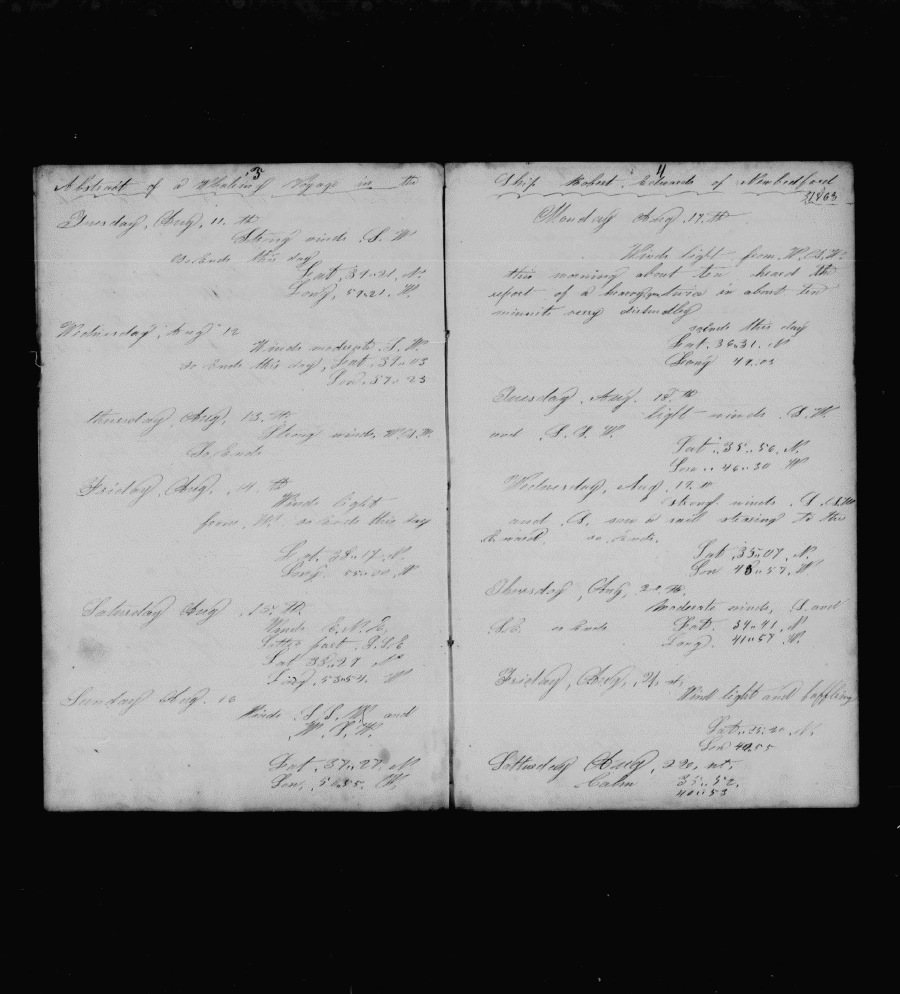 3
Abstract of a Whaling Voyage in the
Tuesday, Aug, 11. th
Strong winds S. W
so Ends this day
Lat, 39.21, N.
Long, 59.21, W.
Wednesday, Aug 12
Winds moderate S. W
so Ends this day, Lat, 39..03
Lon. 57..23
thursday, Aug, 13. th
Strong winds, W.S.W.
So Ends
Friday, Aug, 14. th
Winds light
from, W. so Ends this day
Lat. 38..17. N.
Long. W
Saturday Aug, 15. th.
Winds E. N. E,
Latter part S.S.E
Lat 38..27 N
Long, 53.54. W
Sunday Aug. 16
Winds S. S. W. and
W. S. W.
Lat, 37..27. N
Lon, W.
4
Ship Robert Edwards of Newbedford
1863
Monday Aug. 17. th
Winds light from W.S.W.
this morning about ten heard the
report of a heavy gun twice in about ten
minuits very distinctley
so Ends this day
Lat. 36.31. N
Long 49..03
Tuesday, Aug. 18. th
light winds S. W
and S. S. W.
Lat..35..56. N.
Lon..46..30 W
Wednesday, Aug, 19. th
Strong winds S. S.W
and S. saw a sail stearing to the
so Ends.
Lat, 35..07. N.
Lon 43..57. W
Thursday, Aug, 20. th.
Moderate winds, S. and
S.E. so Ends Lat. 34..41. N
Long. 41..57 W.
Friday, Aug, 21. st,
Wind light and baffling
Lat. N.
Lon 40.55
Satturday Aug, 22. nt.
Calm 35..52.
40..53